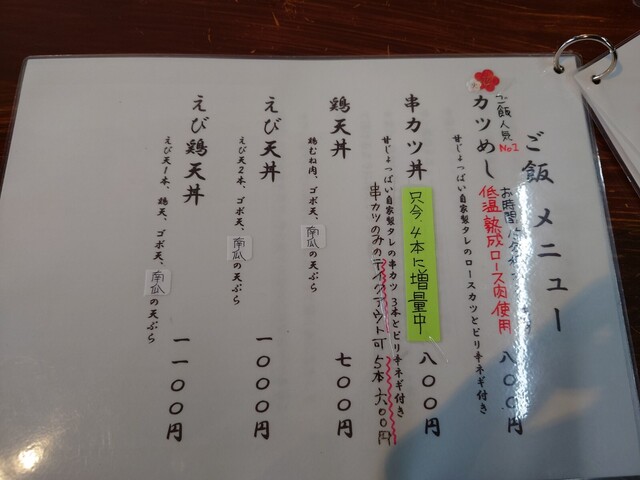 ご飯 メニュー
ご飯人気
No1
カツめし
お時間
低温熟成ロース肉使用
八〇〇円
甘じょっぱい自家製タレのロースカツとピリ辛ネギ付き
串カツ丼
只今4本に増量中
八〇〇円
甘じょっぱい自家製タレの串カツ3本とピリ辛ネギ付き
串カツのみのテイクアウト可 5本 六〇〇円
鶏天丼
七〇〇円
鶏むね肉、ゴボ天、南瓜の天ぷら
えび天丼
一〇〇〇円
えび天2本、ゴボ天、南瓜の天ぷら
えび鶏天丼
一一〇〇円
えび天1本、鶏天、ゴボ天、南瓜の天ぷら